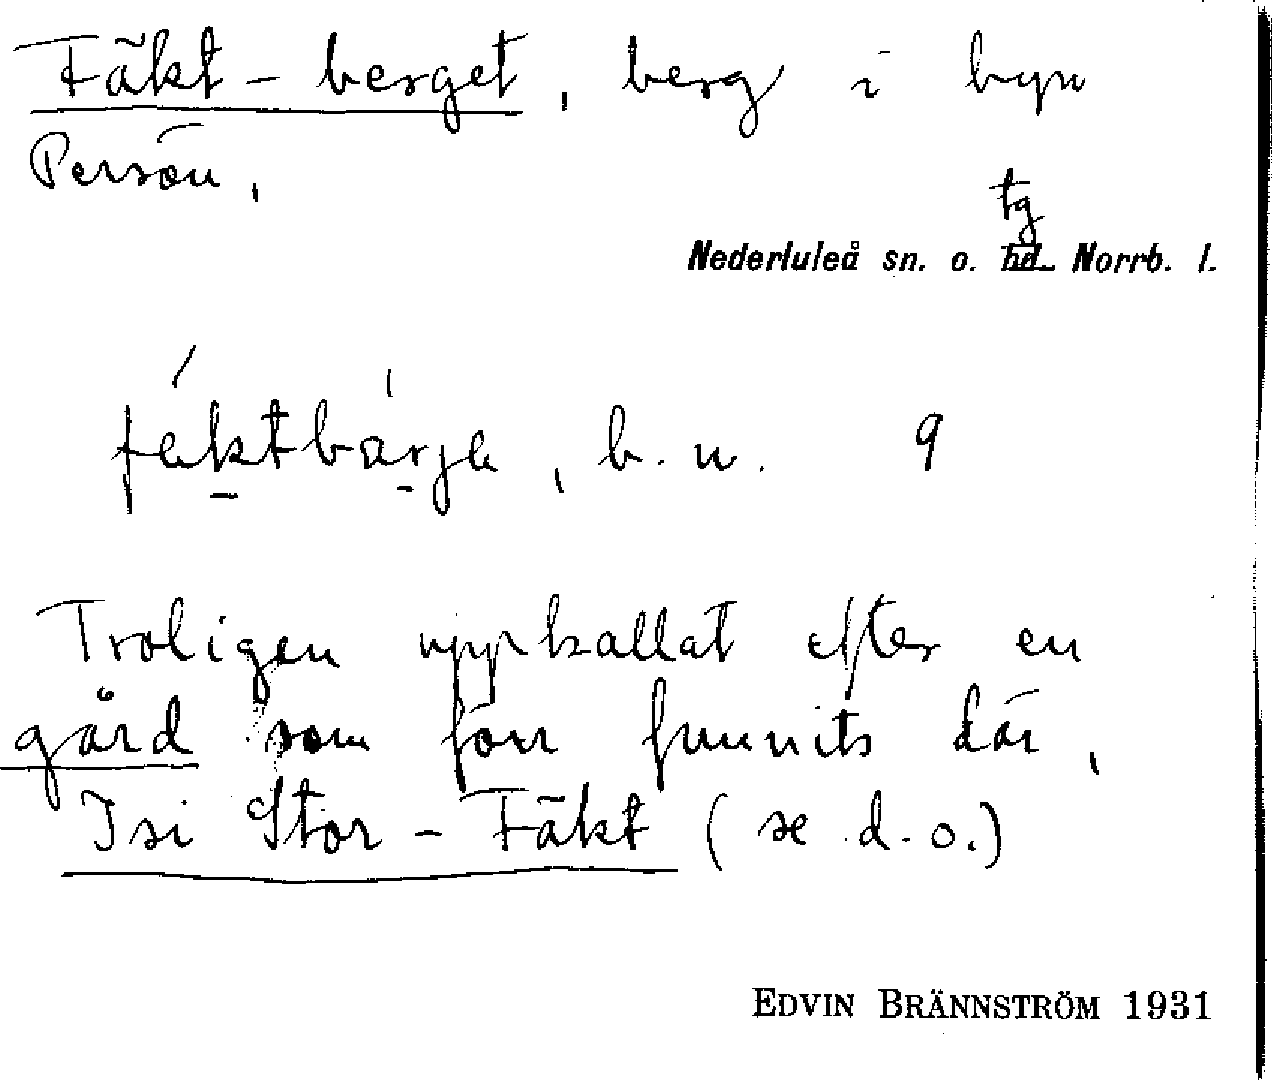 Fäkt-berget, berg i byn
Persön,
tg
Nederluleå sn. o. hd. Norrb. l.
fäktbärjä, b. n. 9
Troligen uppkallat efter en
gård som förr funnits där,
Isi Stor-Fäkt (se d.o.)
EDVIN BRÄNNSTRÖM 1931